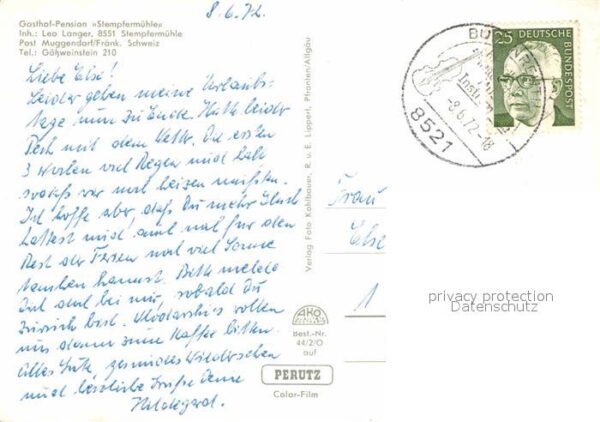 8.6.72.
Gasthof-Pension »Stempfermühle«
Inh.: Leo Langer, 8551 Stempfermühle
Post Muggendorf/Fränk. Schweiz
Tel.: Gößweinstein 210
Liebe Else!
Leider gehen meine Urlaubs-
tage nun zu Ende. Hatte leider
Pech mit dem Wetter. Die ersten
3 Wochen viel Regen und kalt
sodass wir noch heizen mußten.
Ich hoffe aber, daß Du mehr Glück
hattest und auch noch für den
Rest der Ferien noch viel Sonne
tanken kannst. Bitte melde
Dich auch bei mir, sobald Du
zurück bist. wollen
uns dann zum Kaffee bitten.
Alles Gute, gesundes Wiedersehen
und herzliche Grüße Deine
Hildegard.
Verlag Foto Kahlbauer, R. u. E. Lipperl, Pfronten/Allgäu
AKO
Best.-Nr.
44/2/O
auf
PERUTZ
Color-Film
25
DEUTSCHE
BUNDESPOST
8521
-8.6.72-18
Frau
Else
1
privacy protection
Datenschutz